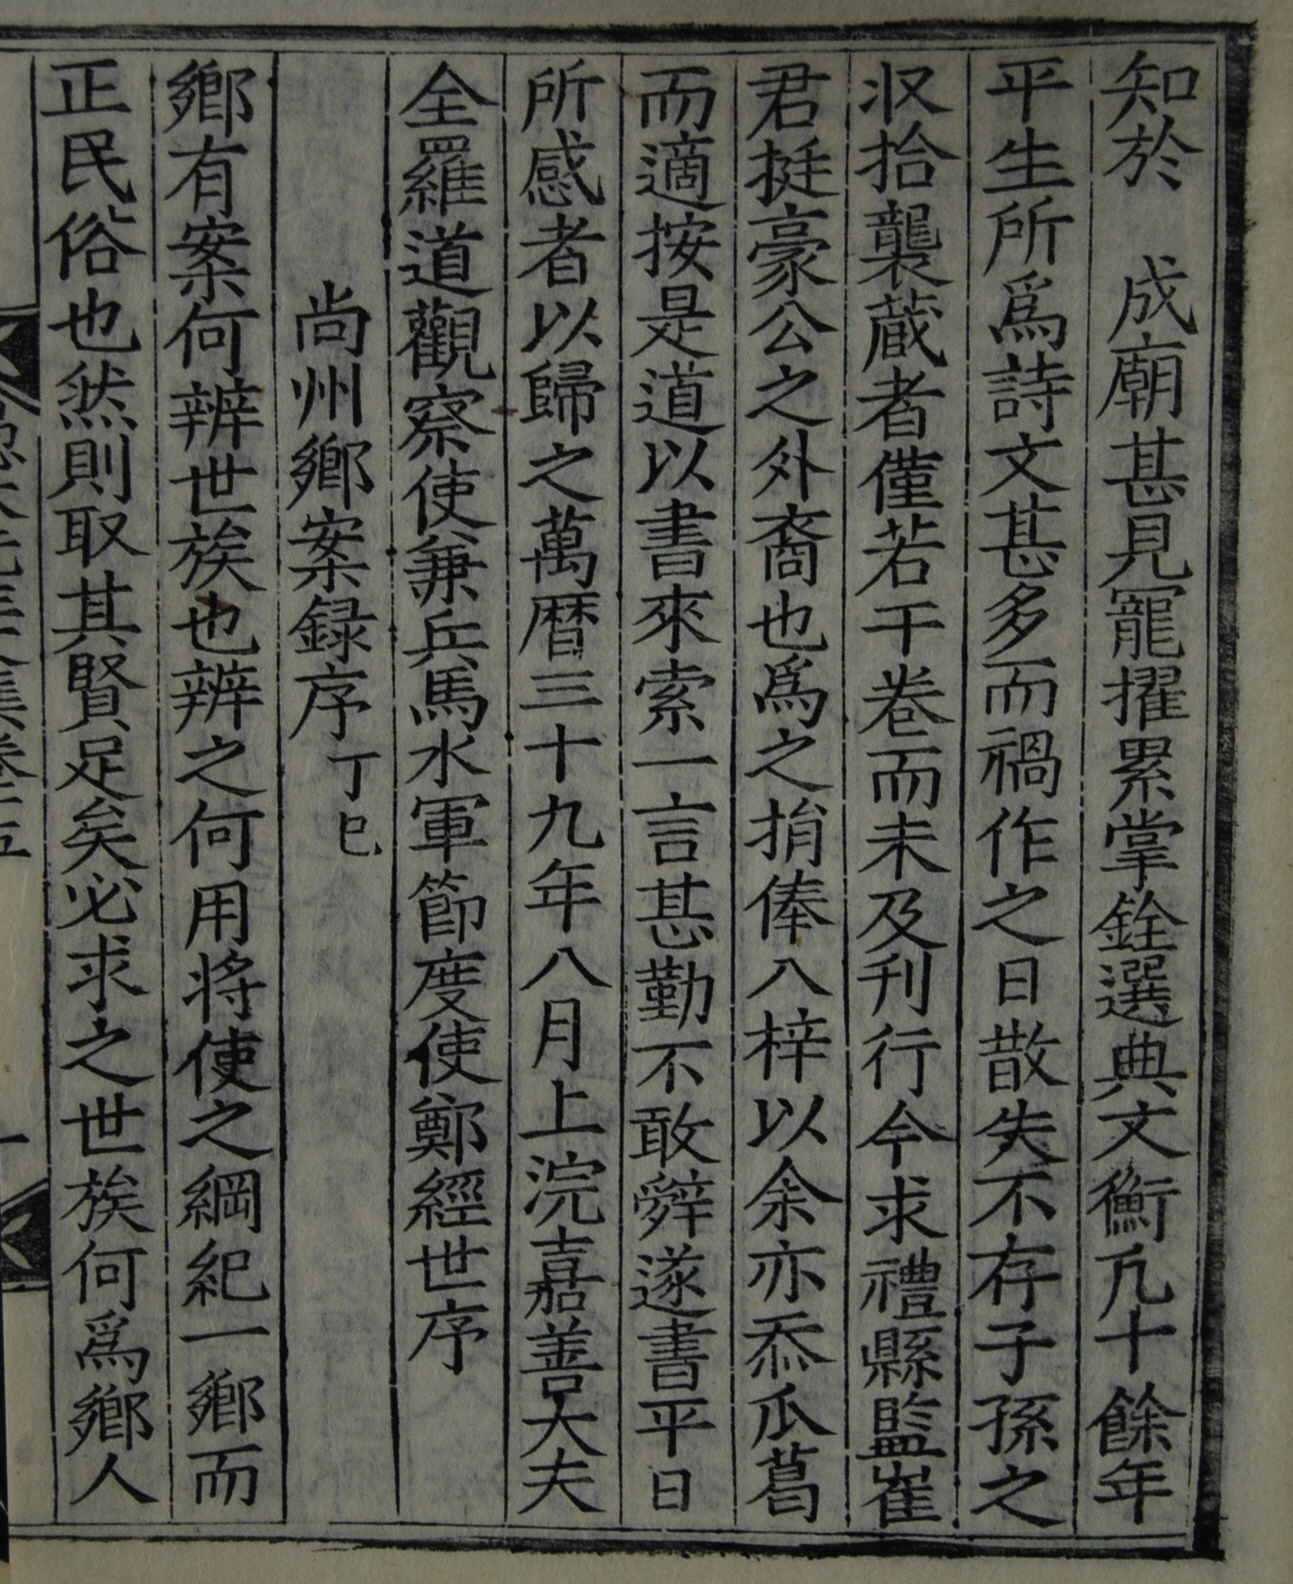 知於　成廟甚見寵擢累掌銓選典文衡凡十餘年
平生所爲詩文甚多而禍作之日散失不存子孫之
収拾襲蔵者僅若干卷而未及刊行今求禮縣監崔
君挺豪公之外裔也爲之捐俸入梓以余亦忝瓜葛
而適按是道以書來索一言甚勤不敢辭遂書平日
所感者以歸之萬曆三十九年八月上浣嘉善大夫
全羅道觀察使兼兵馬水軍節度使鄭經世序
尚州鄕案録序丁巳
鄕有案何辨世族也辨之何用將使之綱紀一鄕而
正民俗也然則取其賢足矣必求之世族何爲鄕人